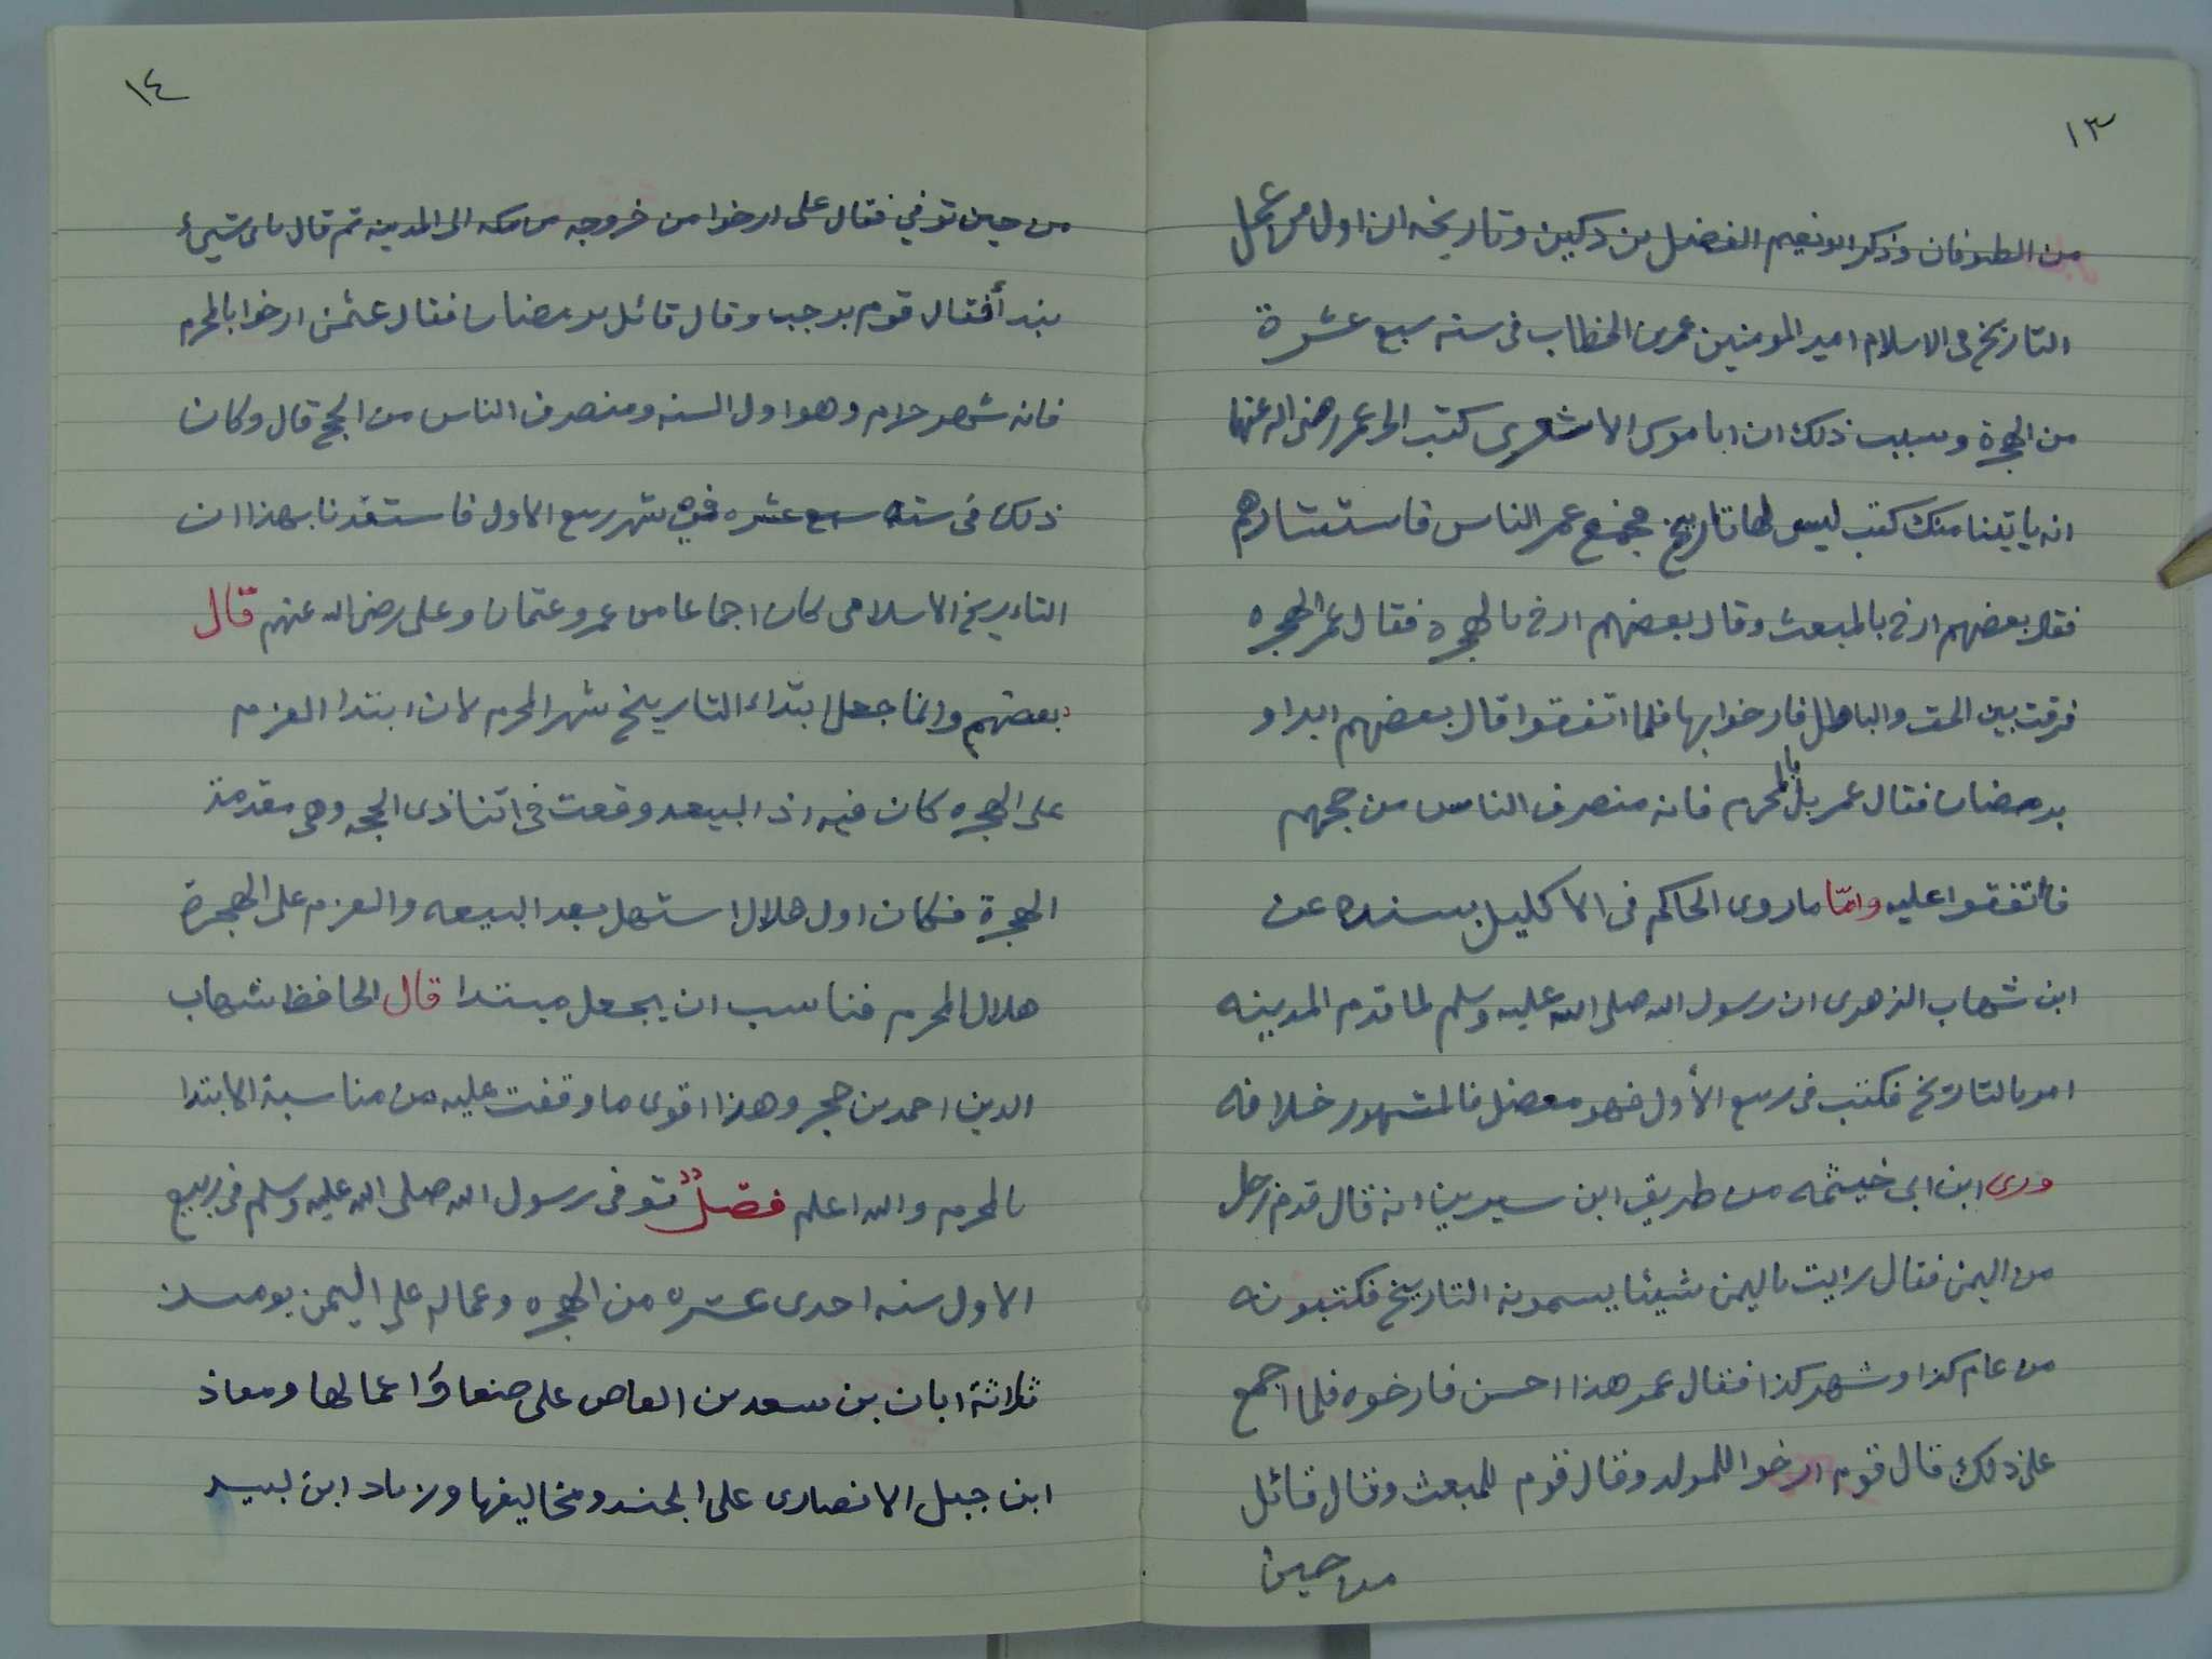 ١٣
من الطوفان وذكر ابو نعيم الفضل بن دكين وتاريخه ان اول من عمل
التاريخ في الاسلام امير المومنين عمر بن الخطاب في سنه سبع عشرة
من الهجرة وسبب ذلك ان ابا موسى الاشعري كتب الى عمر رضي الله عنهما
انه ياتينا منك كتب ليس لها تاريخ فجمع عمر الناس فاستشارهم
فقال بعضهم ارخ بالمبعث وقال بعضهم ارخ بالهجرة فقال عمر الهجره
فرقت بين الحق والباطل فارخوا بها فلما اتفقوا قال بعضهم ابداو
برمضان فقال عمر بل بالمحرم فانه منصرف الناس من حجهم
فاتفقوا عليه وامّا ما روى الحاكم في الاكليل بسنده عن
ابن شهاب الزهري ان رسول الله صلى الله عليه وسلم لما قدم المدينه
امر بالتاريخ فكتب في ربيع الأول فهو معضل فالمشهور خلافه
وروى ابن ابي خيثمه من طريق ابن سيرين انه قال قدم رجل
من اليمن فقال رايت باليمن شيئا يسمونه التاريخ فكتبونه
من عام كذا وشهر كذا فقال عمر هذا احسن فارخوه فلما اجمع
على ذلك قال قوم ارخوا للمولد وقال قوم للمبعث وقال قائل
من حين
١٤
من حين توفي فقال على ارخوا من خروجه من مكه الى المدينه ثم قال باى شيئ
نبدأ فقال قوم برجب وقال قائل برمضان فقال عثمن ارخوا بالمحرم
فانه شهر حرام وهو اول السنه ومنصرف الناس من الحج قال وكان
ذلك في سنه سبع عشره في شهر ربيع الاول فاستفدنا بهذا ان
التاريخ الاسلامي كان اجماعا من عمر وعثمان وعلى رضي الله عنهم قال
بعضهم وانما جعل ابتداء التاريخ شهر المحرم لان ابتدا العزم
على الهجره كان فيه اذ البيعه وقعت في اثنا ذى الحجه وهي مقدمة
الهجرة فكان اول هلال استهل بعد البيعه والعزم على الهجرة
هلال المحرم فناسب ان يجعل مبتدا قال الحافظ شهاب
الدين احمد بن حجر وهذا اقوى ما وقفت عليه من مناسبة الابتدا
بالمحرم والله اعلم فصلٌ توفى رسول الله صلى الله عليه وسلم في ربيع
الاول سنه احدى عشره من الهجره وعماله على اليمن يومىىذ
ثلاثة ابان بن سعد بن العاص على صنعا واعمالها ومعاذ
ابن جبل الانصارى على الجند ومخاليفها وزياد ابن لبيد